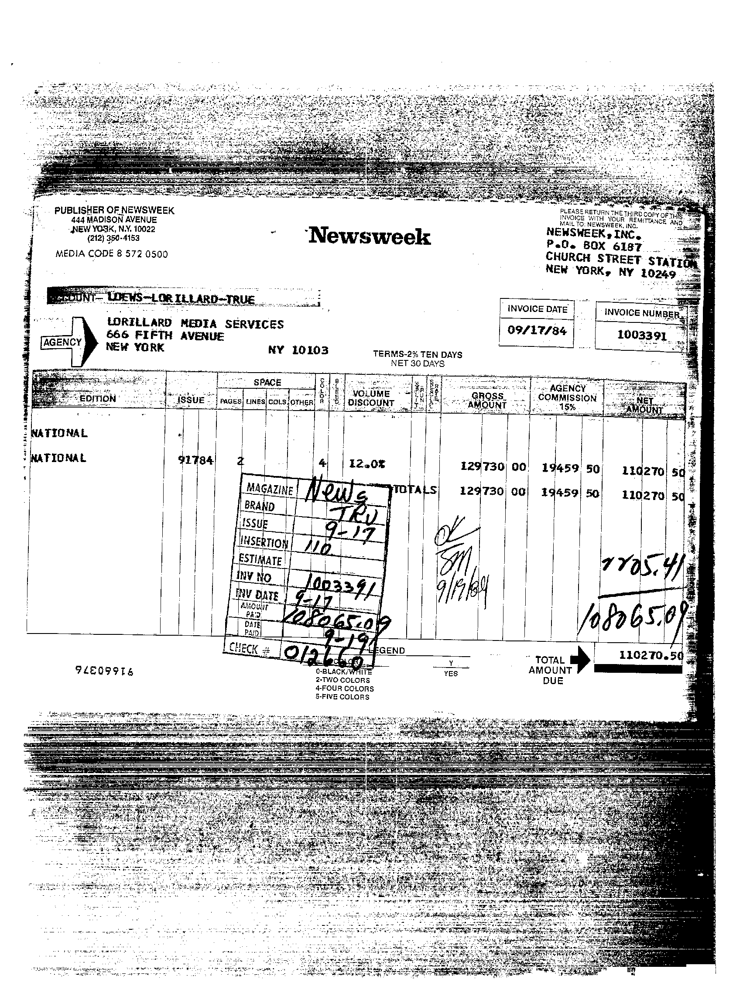 PUBLISHER OF NEWSWEEK
444 MADISON AVENUE
NEW YORK, N.Y. 10022
(212) 350-4153
MEDIA CODE 8 572 0500
Newsweek
PLEASE RETURN THE THIRD COPY OF THIS
INVOICE WITH YOUR REMITTANCE AND
MAIL TO: NEWSWEEK, INC.
NEWSWEEK, INC.
P.O. BOX 6187
CHURCH STREET STATION
NEW YORK, NY 10249
ACCOUNT- LOEWS-LORILLARD-TRUE
INVOICE DATE INVOICE NUMBER
09/17/84 1003391
AGENCY
LORILLARD MEDIA SERVICES
666 FIFTH AVENUE
NEW YORK NY 10103
TERMS-2% TEN DAYS
NET 30 DAYS
EDITION ISSUE SPACE PAGES LINES COLS. OTHER VOLUME DISCOUNT GROSS AMOUNT AGENCY COMMISSION 15% NET AMOUNT
NATIONAL
NATIONAL 91784 2 4 12.0% 129730 00 19459 50 110270 50
TOTALS 129730 00 19459 50 110270 50
MAGAZINE News
BRAND TRU
ISSUE 9-17
INSERTION 110
ESTIMATE
INV NO 1003391
INV DATE 9-17
AMOUNT PAID 108065.09
DATE PAID 9-19
CHECK # 012660
OK
SM
9/19/84
2205.41
108065.09
LEGEND
0-BLACK/WHITE
2-TWO COLORS
4-FOUR COLORS
5-FIVE COLORS
Y
YES
TOTAL AMOUNT DUE 110270.50
91660376